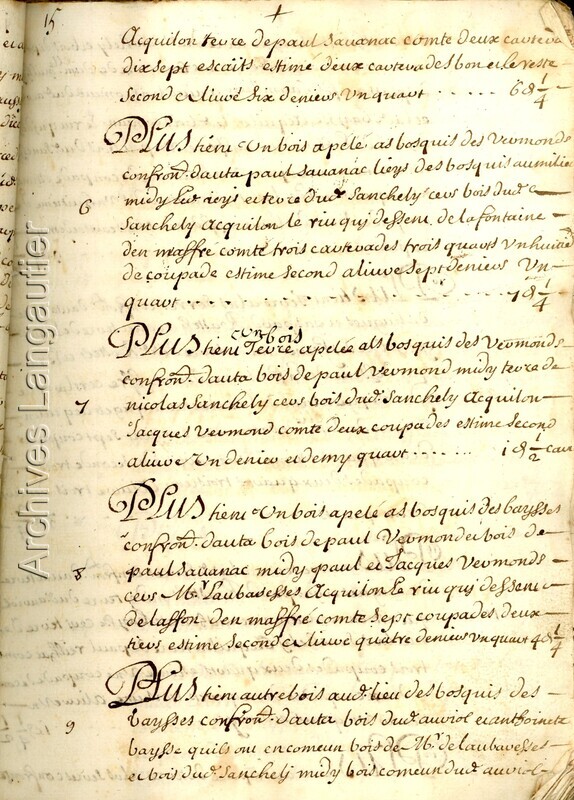 15
+
Acquilon terre de paul sauanac comte deux carterades
dix sept escaits estime deux carterades bon et le reste
second aliuré six deniers vn quart ..... 6 d 1/4
PLUS tient Vn bois apelé as bosquis des vermonds
confront. dauta paul sauanac lieys des bosquis au milieu
midy terre dud. Sanchely cers bois dud.
6
Sanchely Acquilon le riu quj dessent de la fontaine
den maffre comte trois carterades trois quarts
de coupade estime second aliuré sept deniers Vn
quart ........... 7 d 1/4
PLUS tient Terre apelée als bosquis des vermonds
vn bois
confront. dauta bois de paul vermond midy terre de
7
nicolas Sanchely cers bois dud. Sanchely Acquilon
Jacques vermond comte deux coupades estime second
aliuré Vn denier et demy quart ...... 1 d 1/2 cart
PLUS tient Vn bois apelé as bosquis des baysses
confront. dauta bois de paul Vermond et bois de
8
paul sauanac midy paul et Jacques vermonds
cers Mr. Laubaresses Acquilon Le riu quj dessent
de lasfon den maffré comte sept coupades deux
tiers estime second aliuré quatre deniers vn quart 4 d 1/4
PLUS tient autre bois aud. lieu des bosquis des
9
baysses confront. dauta bois dud. auriol et anthoinete
baysse quils ont en comeun bois de Mr. de laubaresses
et bois dud. sanchelj midy bois comeun dud. auriol
Archives Langautier